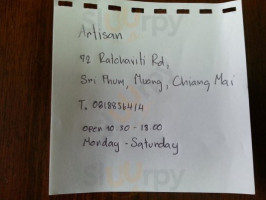 Artisan
72 Ratchaviti Rd,
Sri Phum, Muang, Chiang Mai
T. 0818836414
Open 10:30 - 18:00
Monday - Saturday
sluurpy
sluurpy